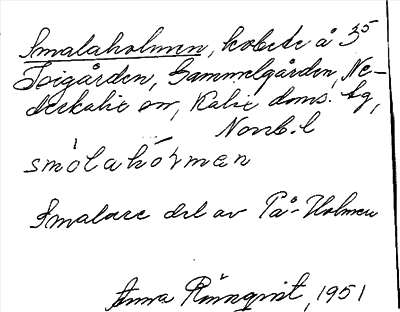 Smalaholmen, hobete å 35
Toigården, Gammelgården, Ne-
derkalix sn, Kalix doms. bg,
Norrb. l
smólahórmen
Smalare del av På-Holmen
Anna Rönnqvist, 1951